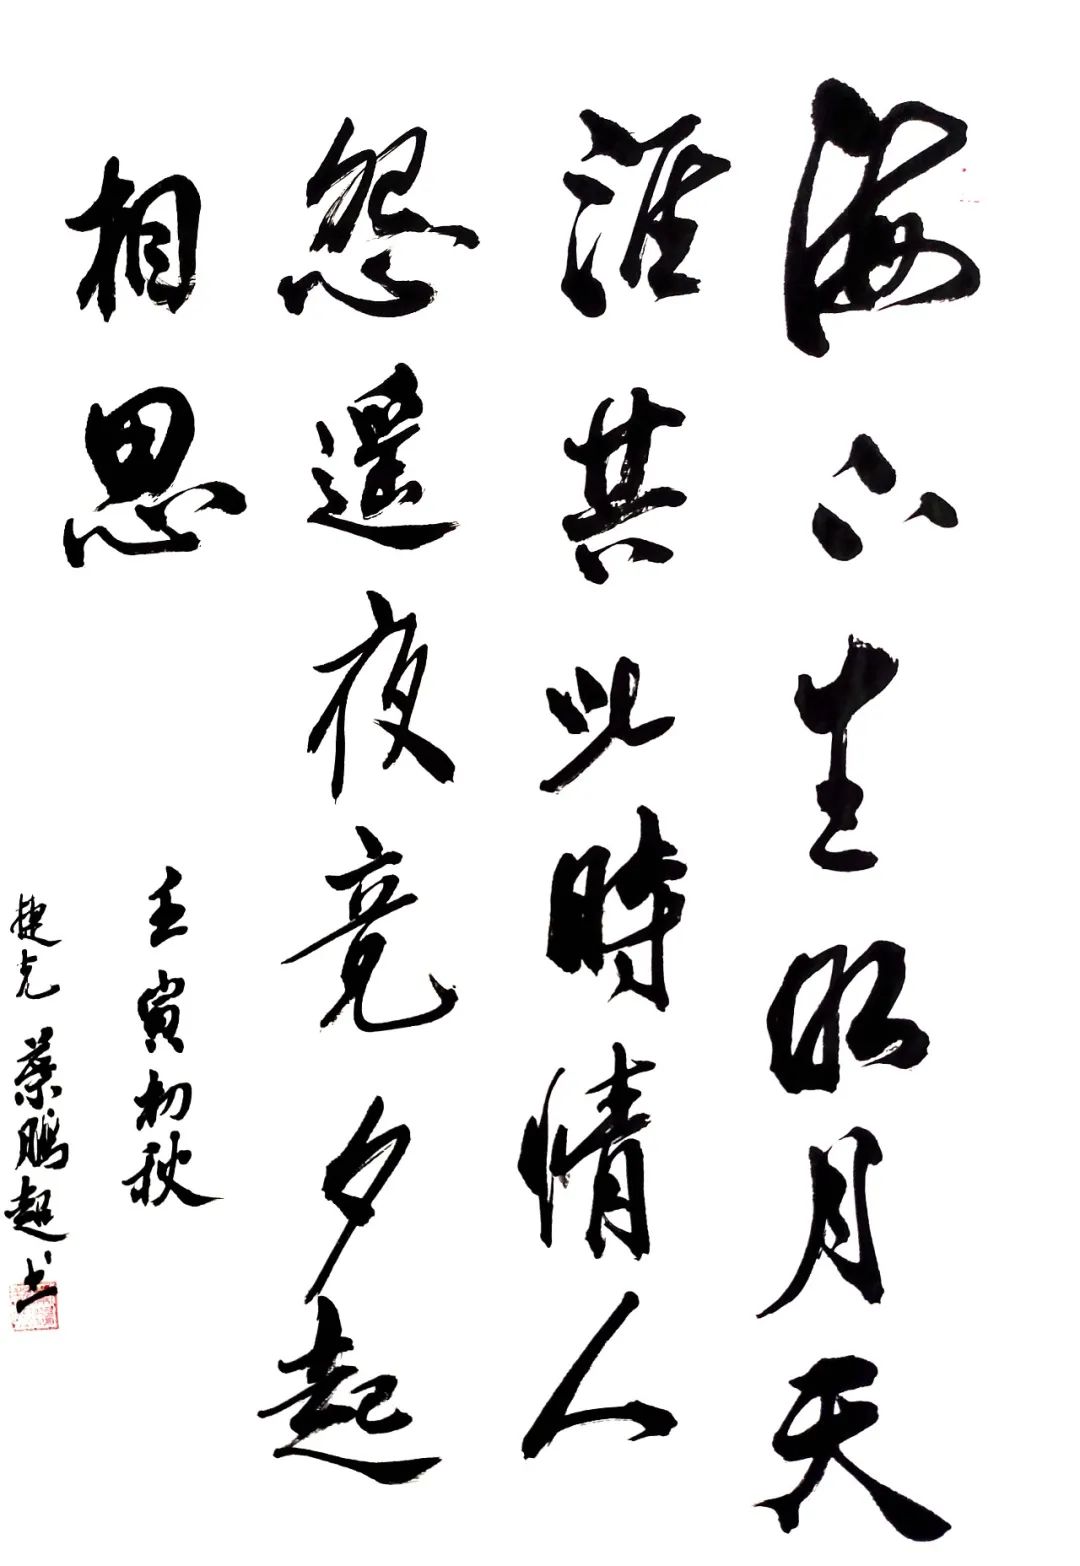 海上生明月天
涯共此時情人
怨遙夜竟夕起
相思
壬寅初秋
捷克 鵬超书